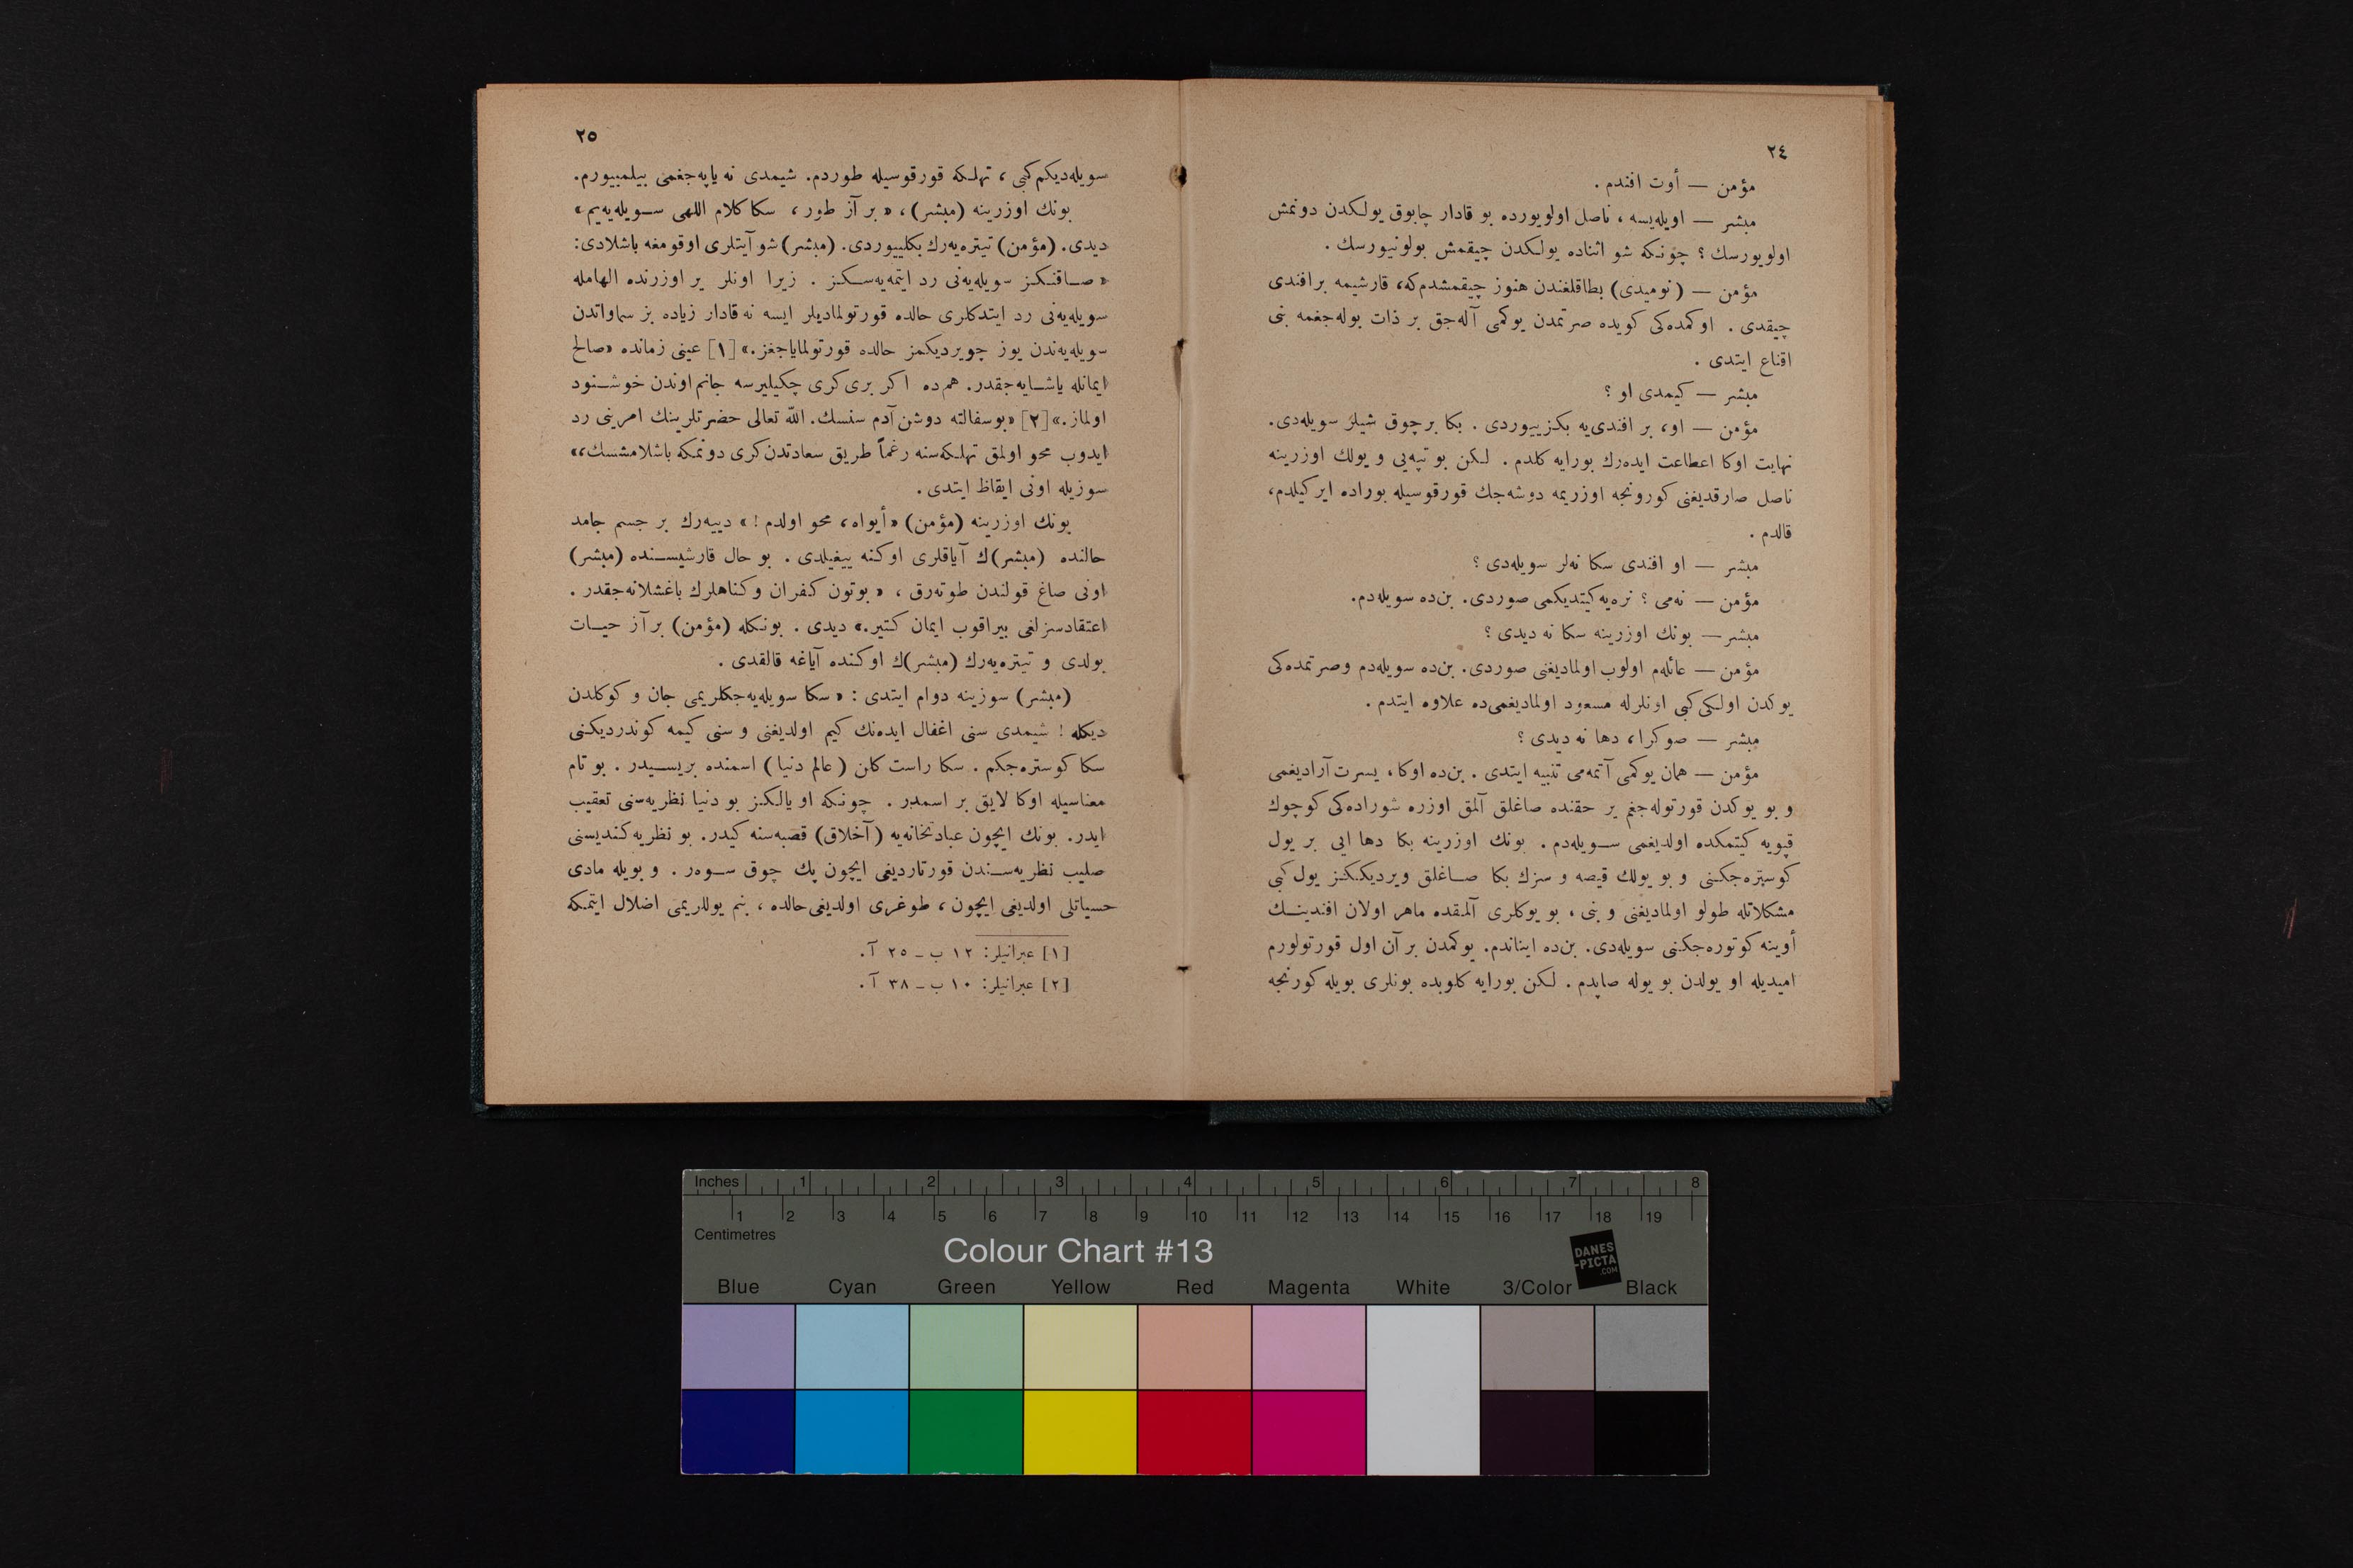 ٢٤
مؤمن — أوت افندم .
مبشر — اویله‌یسه ، ناصل اولویورده بو قادار چابوق یولکدن دونمش
اولویورسك ؟ چونکه شو اثناده یولکدن چیقمش بولونیورسك .
مؤمن — (نومیدی) بطاقلغندن هنوز چیقمشدم‌که، قارشیمه برافندی
چیقدی . اوکمده‌کی کویده صرتمدن یوکمی آله‌جق بر ذات بوله‌جغمه بنی
اقناع ایتدی .
مبشر — کیمدی او ؟
مؤمن — او، بر افندی‌یه بکزییوردی . بکا برچوق شیلر سویله‌دی.
نهایت اوکا اعطاعت ایده‌رك بورایه کلدم . لکن بو تپه‌یی و یولك اوزرینه
ناصل صارقدیغنی کورونجه اوزریمه دوشه‌جك قورقوسیله بوراده ایرکیلدم،
قالدم .
مبشر — او افندی سکا نه‌لر سویله‌دی ؟
مؤمن — نه‌می ؟ نره‌یه کیتدیکمی صوردی. بن‌ده سویله‌دم.
مبشر — بونك اوزرینه سکا نه دیدی ؟
مؤمن — عائله‌م اولوب اولمادیغنی صوردی. بن‌ده سویله‌دم وصرتمده‌کی
یوکدن اولکی کبی اونلرله مسعود اولمادیغمی‌ده علاوه ایتدم .
مبشر — صوکرا، دها نه دیدی ؟
مؤمن — همان یوکمی آتمه‌می تنبیه ایتدی . بن‌ده اوکا، یسرت آرادیغمی
و بو یوکدن قورتوله‌جغم یر حقنده صاغلق آلمق اوزره شوراده‌کی کوچوك
قپویه کیتمکده اولدیغمی سویله‌دم . بونك اوزرینه بکا دها ایی بر یول
کوستره‌جکنی و بو یولك قیصه و سزك بکا صاغلق ویردیککز یول کبی
مشکلاتله طولو اولمادیغنی و بنی ، بو یوکلری آلمقده ماهر اولان افندینك
أوینه کوتوره‌جکنی سویله‌دی. بن‌ده ایناندم. یوکمدن بر آن اول قورتولورم
امیدیله او یولدن بو یوله صاپدم . لکن بورایه کلوبده بونلری بویله کورنجه
٢٥
سویله‌دیکم کبی ، تهلکه قورقوسیله طوردم. شیمدی نه یاپه‌جغمی بیلمییورم.
بونك اوزرینه (مبشر)، « بر آز طور، سکا کلام اللهی سویله‌یه‌یم»
دیدی. (مؤمن) تیتره‌یه‌رك بکلییوردی. (مبشر) شو آیتلری اوقومغه باشلادی:
« صاقنکز سویله‌یه‌نی رد ایتمه‌یه‌سکز . زیرا اونلر یر اوزرنده الهامله
سویله‌یه‌نی رد ایتدکلری حالده قورتولمادیلر ایسه نه قادار زیاده بز سماواتدن
سویله‌یه‌ندن یوز چویردیکمز حالده قورتولمایاجغز.» [١] عینی زمانده «صالح
ایمانله یاشایه‌جقدر. هم‌ده اکر بری کری چکیلیرسه جانم اوندن خوشنود
اولماز.» [٢] «بوسفالته دوشن آدم سنسك. الله تعالی حضرتلرینك امرینی رد
ایدوب محو اولمق تهلکه‌سنه رغماً طریق سعادتدن کری دونمکه باشلامشسك،»
سوزیله اونی ایقاظ ایتدی .
بونك اوزرینه (مؤمن) «أیواه، محو اولدم !» دییه‌رك بر جسم جامد
حالنده (مبشر)ك آیاقلری اوکنه ییغیلدی . بو حال قارشیسنده (مبشر)
اونی صاغ قولندن طوته‌رق ، « بوتون کفران و کناهلرك باغشلانه‌جقدر .
اعتقادسزلغی بیراقوب ایمان کتیر.» دیدی . بونکله (مؤمن) بر آز حیات
بولدی و تیتره‌یه‌رك (مبشر)ك اوکنده آیاغه قالقدی .
(مبشر) سوزینه دوام ایتدی : « سکا سویله‌یه‌جکلریمی جان و کوکلدن
دیکله ! شیمدی سنی اغفال ایده‌نك کیم اولدیغنی و سنی کیمه کوندردیکنی
سکا کوستره‌جکم . سکا راست کلن (عالم دنیا) اسمنده بریسیدر . بو تام
معناسیله اوکا لایق بر اسمدر . چونکه او یالکز بو دنیا نظریه‌سنی تعقیب
ایدر. بونك ایچون عبادتخانه‌یه (آخلاق) قصبه‌سنه کیدر. بو نظریه کندیسنی
صلیب نظریه‌سندن قورتاردیغی ایچون پك چوق سوه‌ر . و بویله مادی
حسیاتلی اولدیغی ایچون ، طوغری اولدیغی حالده ، بنم یوللریمی اضلال ایتمکه
[١] عبرانیلر: ١٢ ب ـ ٢٥ آ.
[٢] عبرانیلر: ١٠ ب ـ ٣٨ آ.
Inches 1 2 3 4 5 6 7 8
1 2 3 4 5 6 7 8 9 10 11 12 13 14 15 16 17 18 19
Centimetres
Colour Chart #13
DANES
-PICTA
.COM
Blue Cyan Green Yellow Red Magenta White 3/Color Black